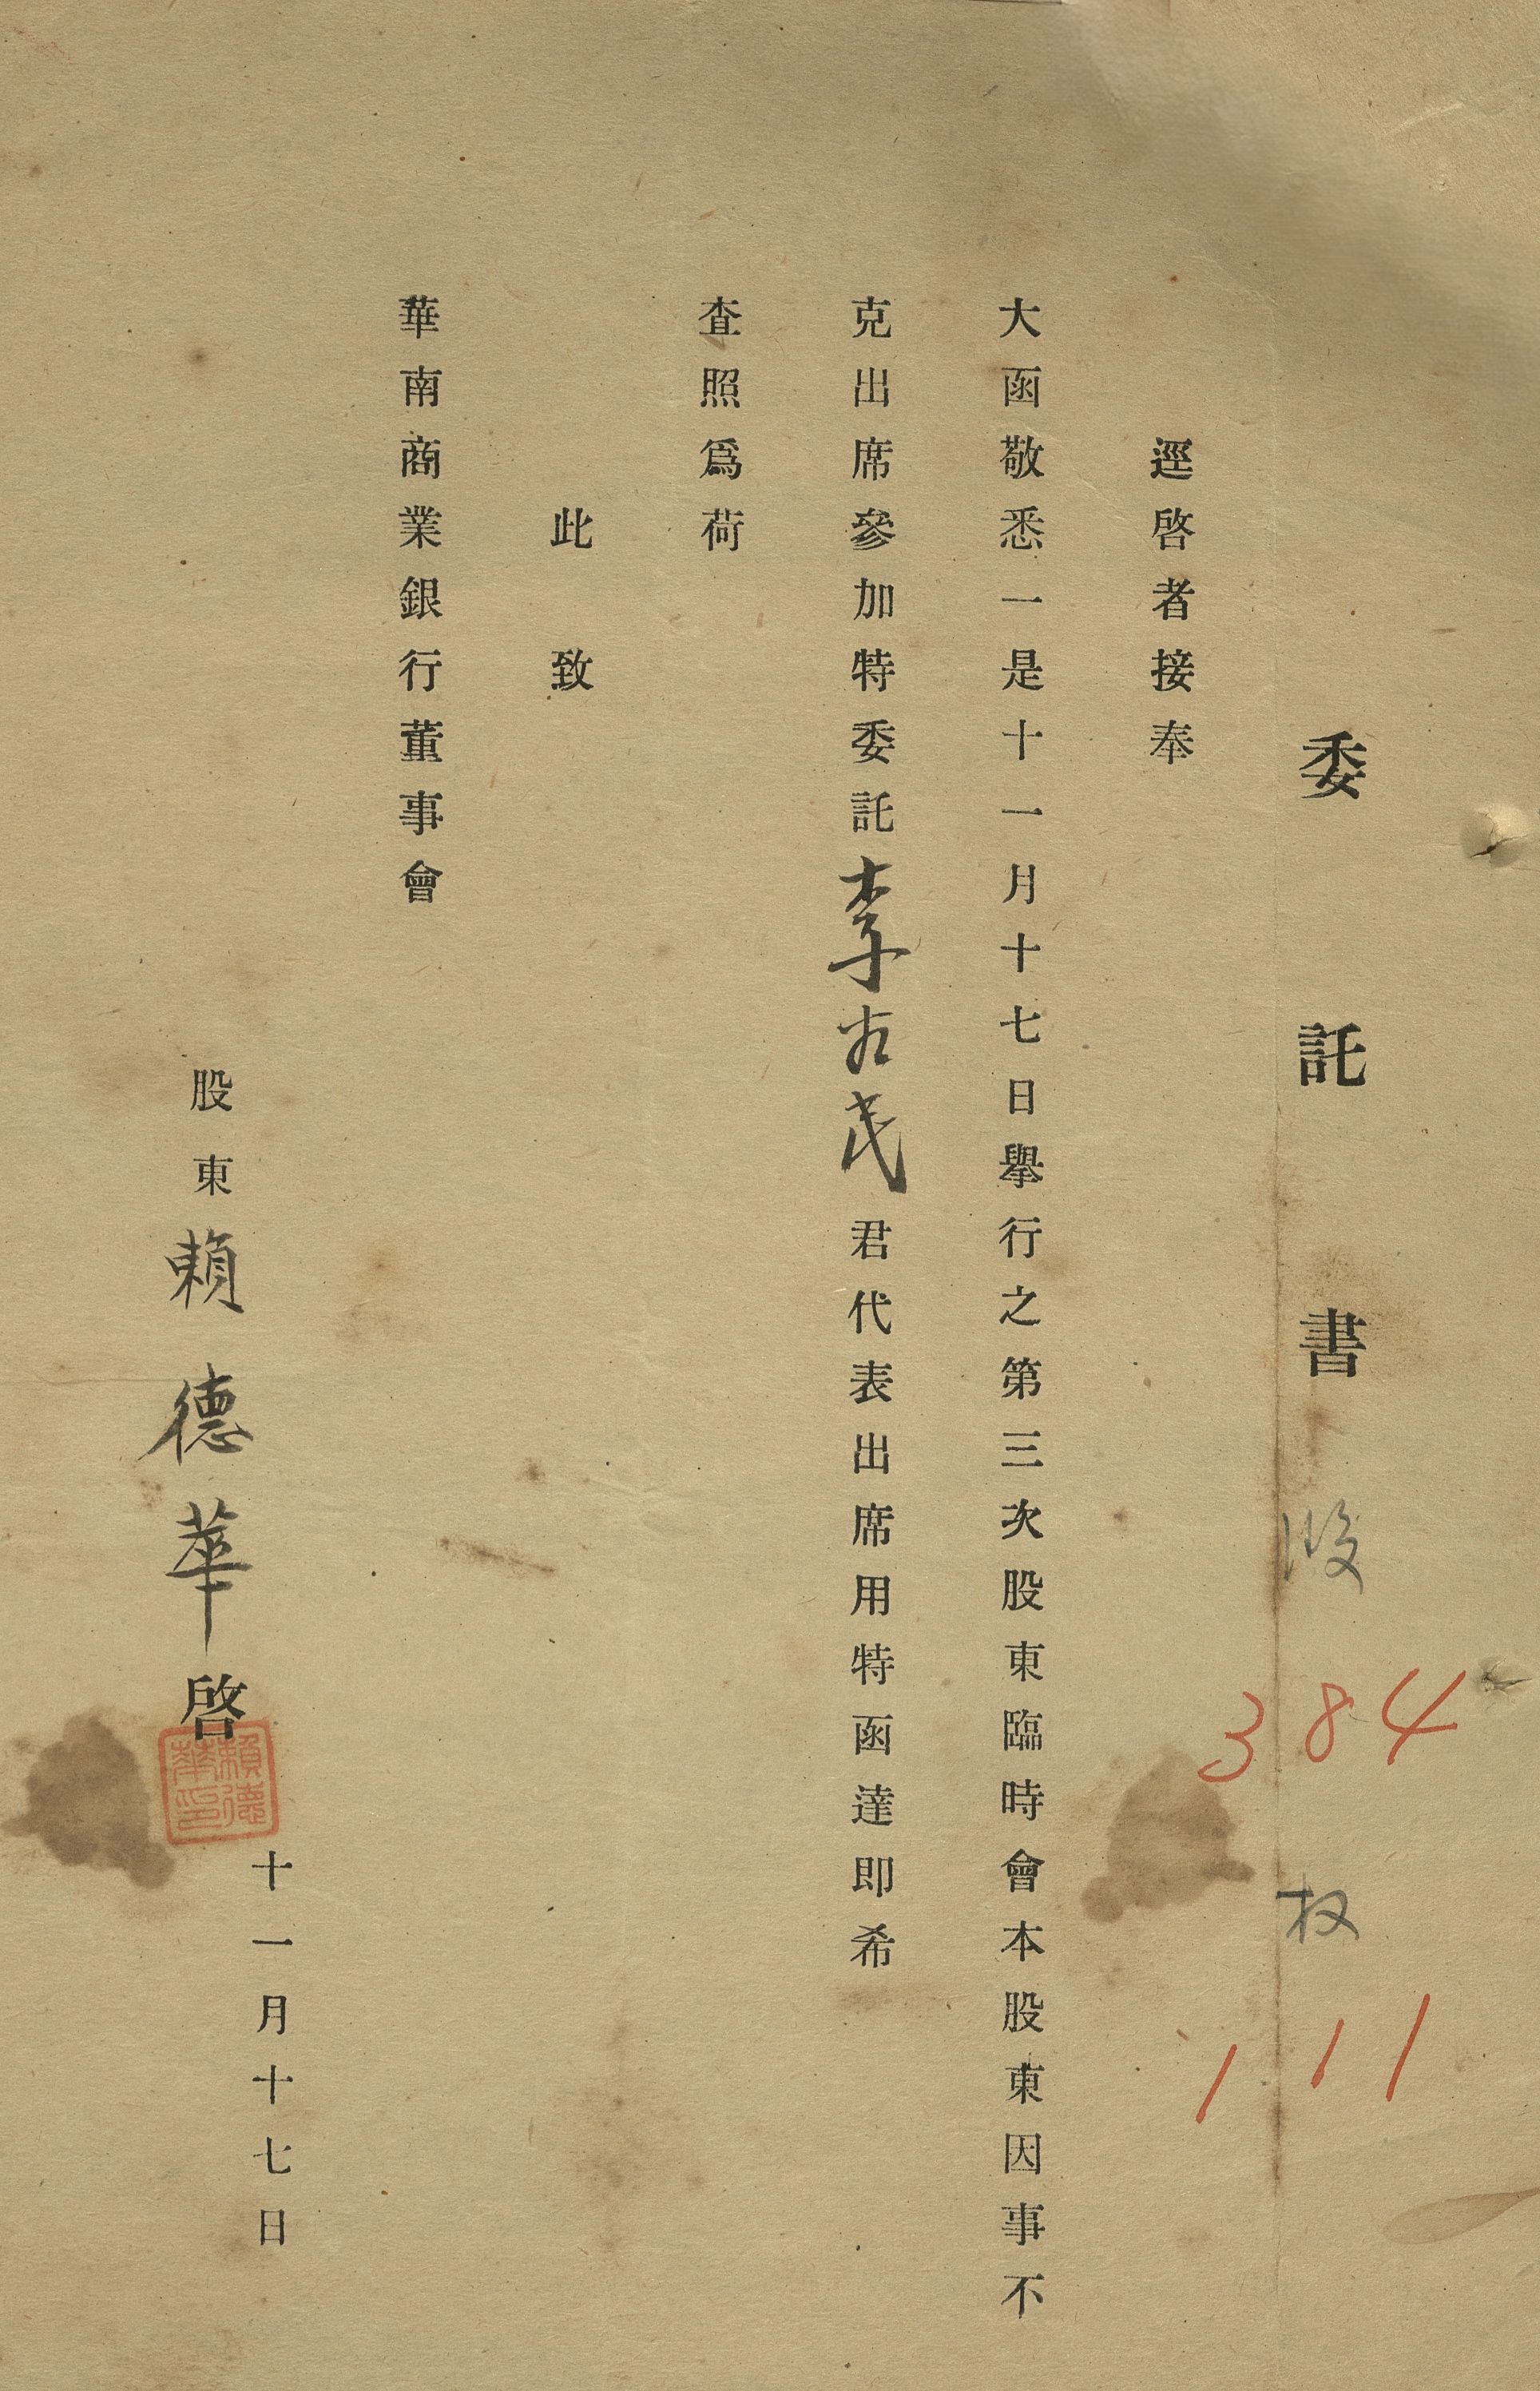 委託書
股 384
权 111
逕啓者接奉
大函敬悉一是十一月十七日舉行之第三次股東臨時會本股東因事不
克出席參加特委託李友民君代表出席用特函達即希
查照爲荷
此致
華南商業銀行董事會
十一月十七日
股東賴德華啓
賴德華印